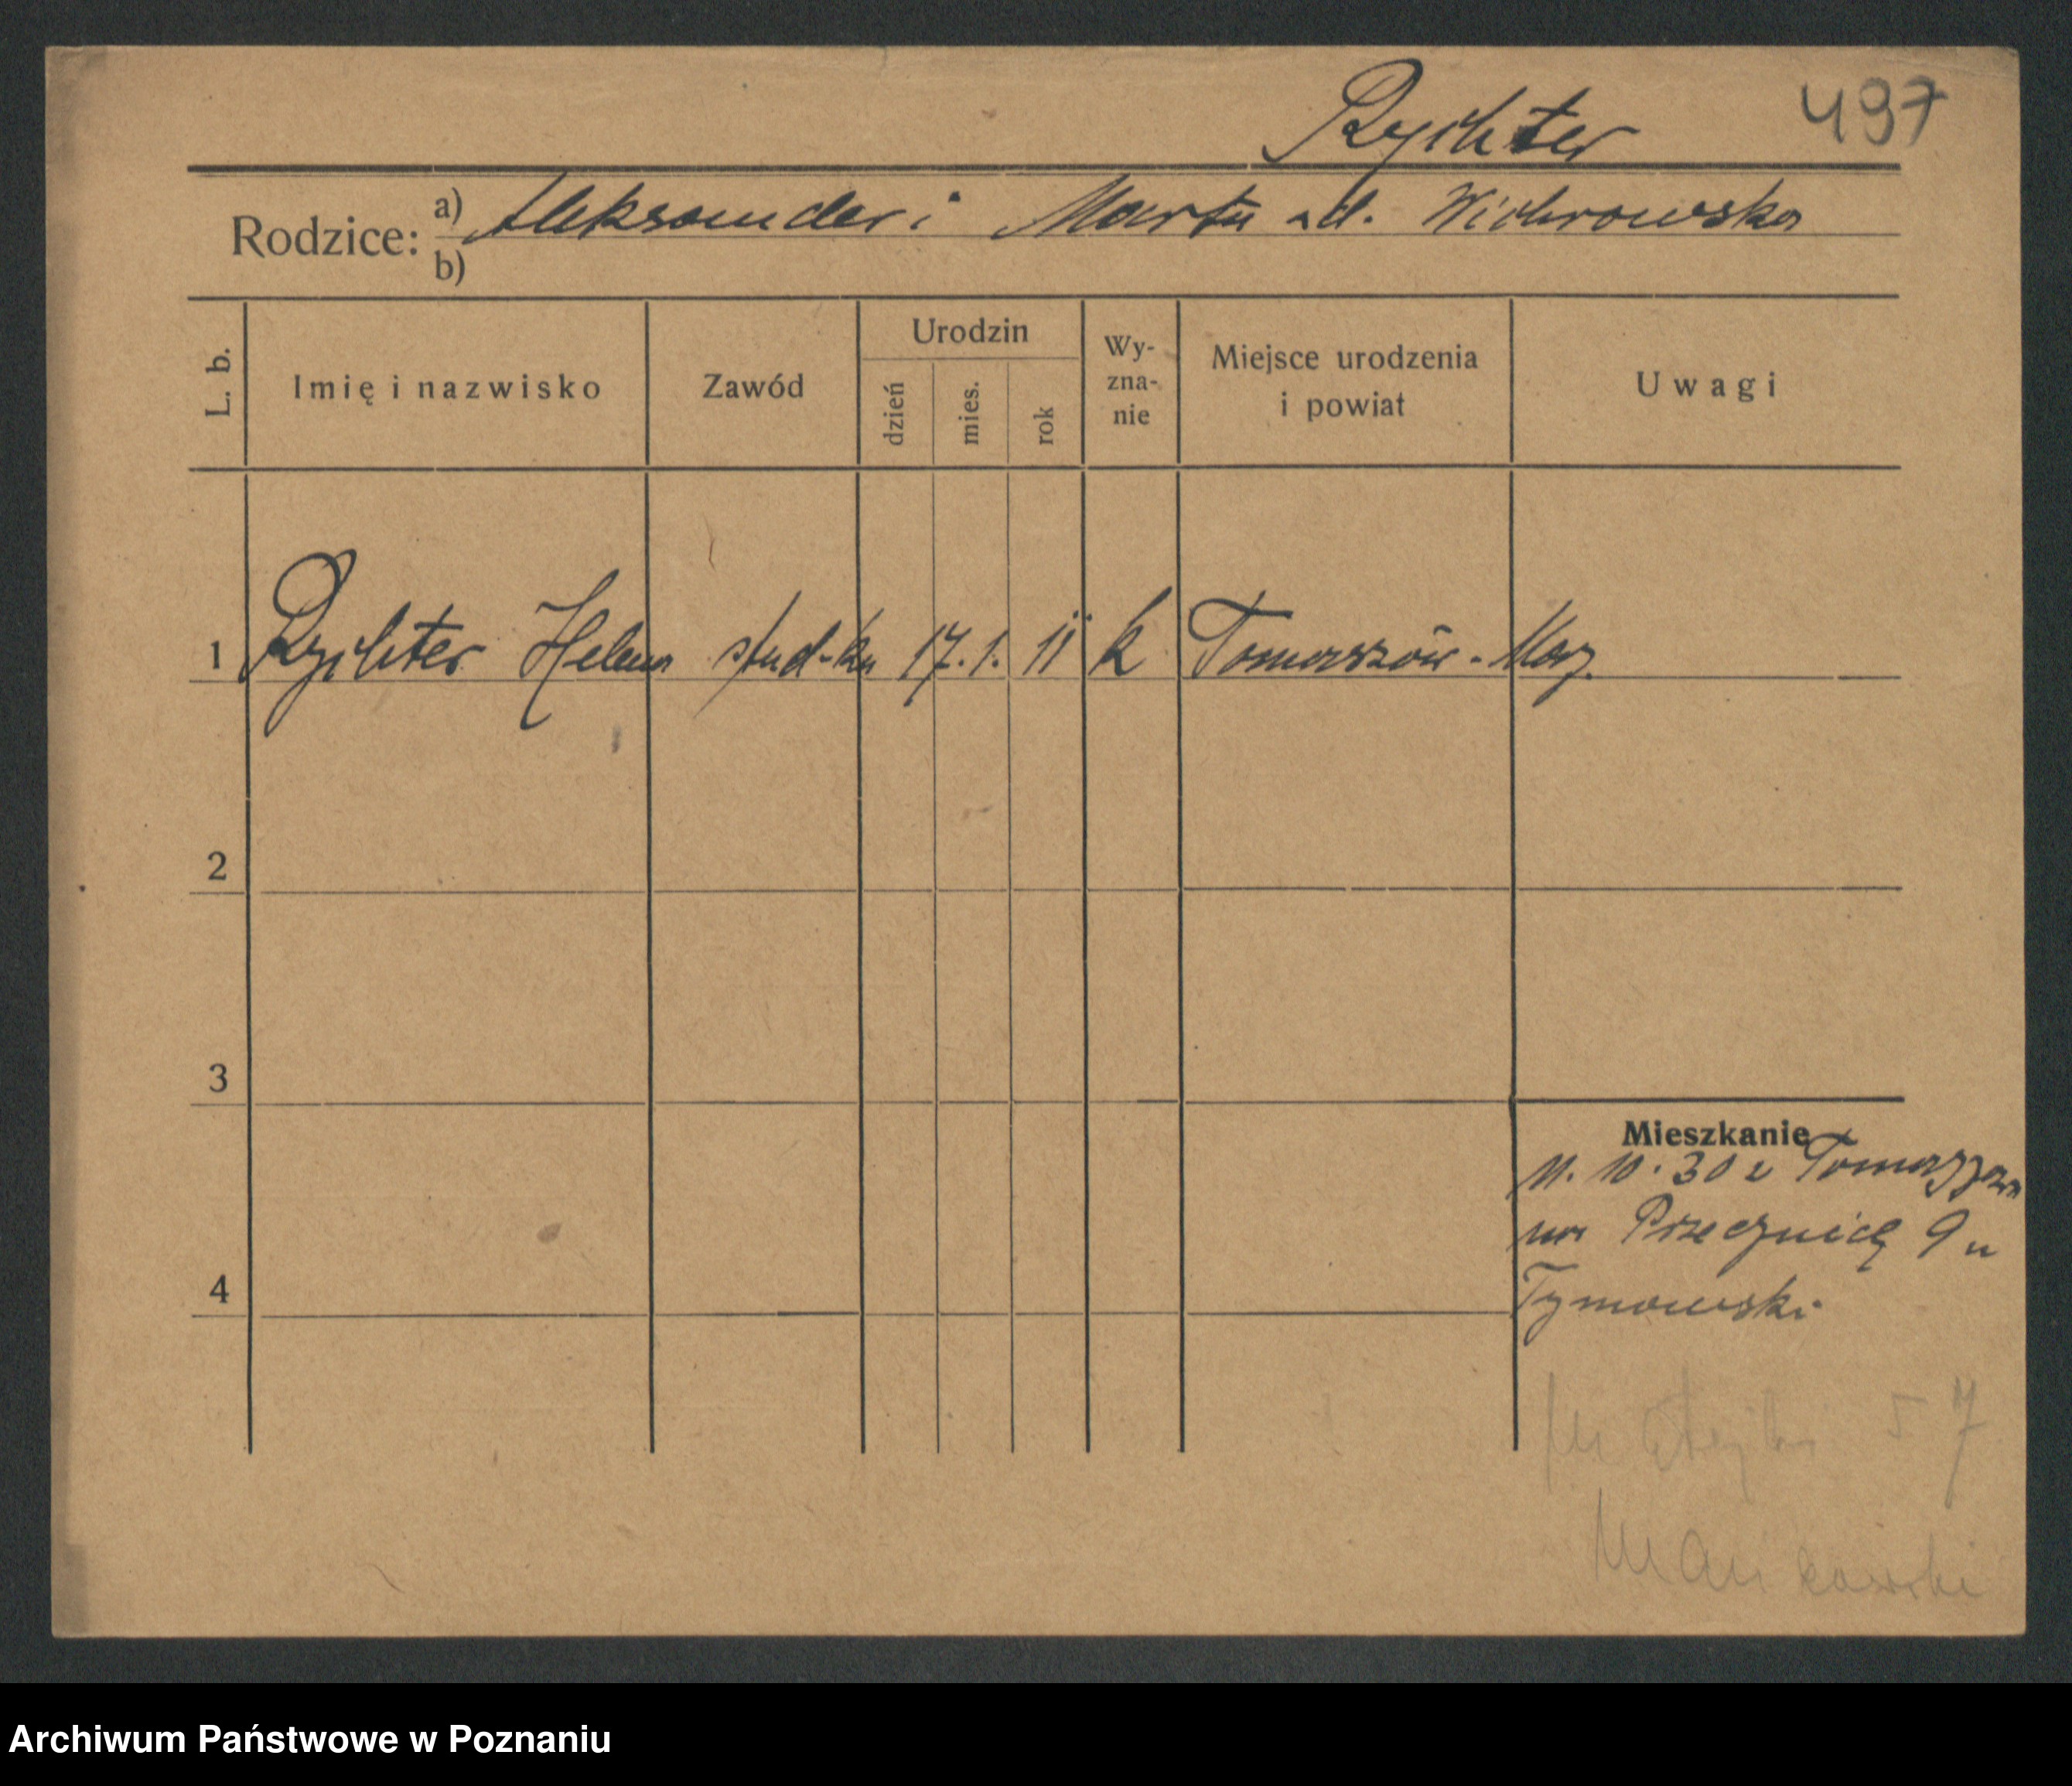 Rychter 497
Rodzice: a) Aleksander i Marta zd. Wichrowska
b)
L. b. Imię i nazwisko Zawód Urodzin dzień mies. rok Wy-zna-nie Miejsce urodzenia i powiat Uwagi
1 Rychter Helena stud-ka 17. 1. 11 k Tomaszów-Maz.
2
3
Mieszkanie
10. 30 z Tomaszowa
na Przecznicę 9 u
4
Tymowski
57
Archiwum Państwowe w Poznaniu